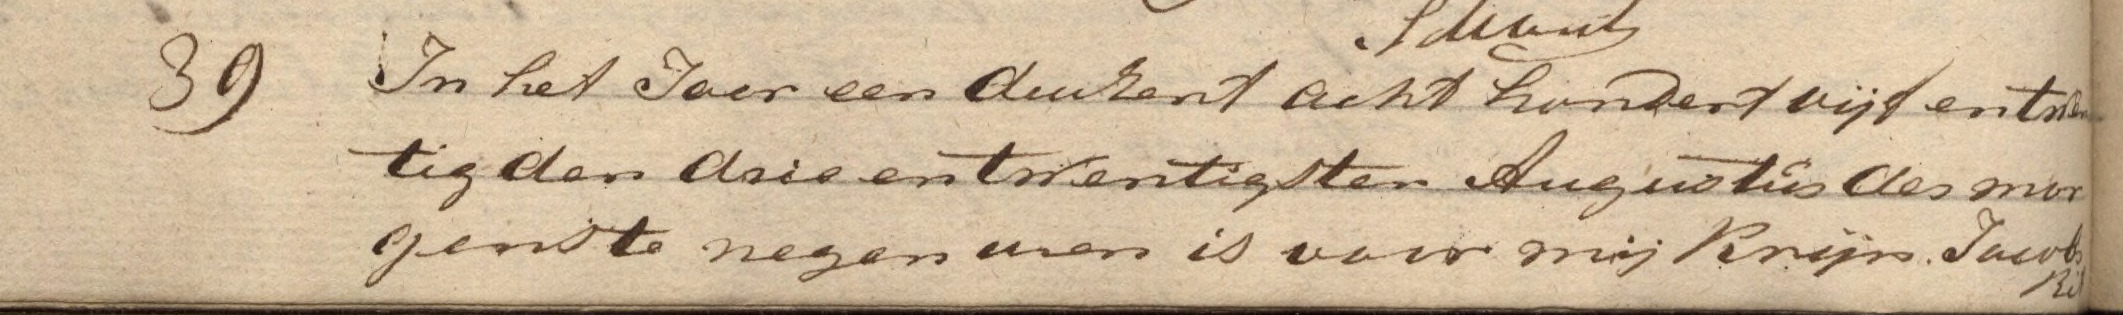 39 In het Jaar een duizent acht hondert vijf en twen
tig den drie en twentigsten Augustus des mor
gens te negen uren is voor mij Krijn Jacobs